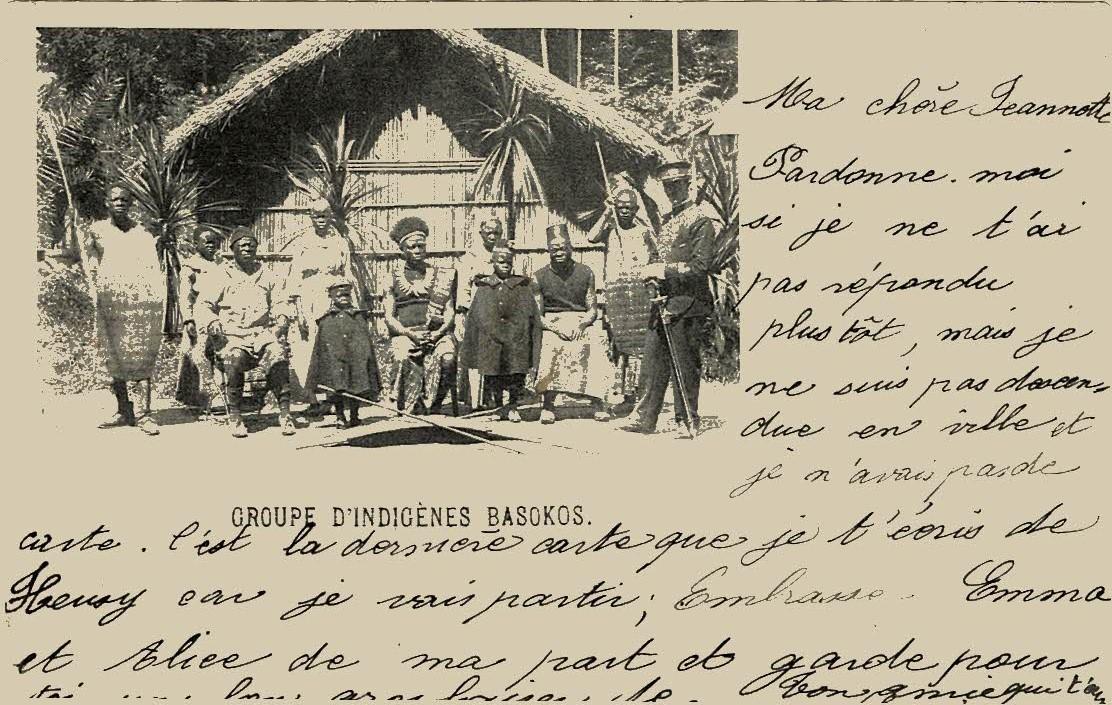 Ma chère Jeannette
Pardonne-moi
si je ne t'ai
pas répondu
plus tôt, mais je
ne suis pas descen-
due en ville et
je n'avais pas de
GROUPE D'INDIGÈNES BASOKOS.
carte. C'est la dernière carte que je t'écris de
Heusy car je vais partir; Embrasse Emma
et Alice de ma part et garde pour
toi un bon gros baiser de. Ton amie qui t'aim